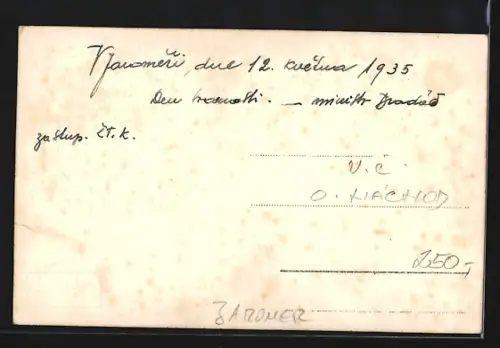 V Jaroměři, dne 12. května 1935
Den brannosti. — ministr Bradáč
zastup. čt.k.
V.Č.
O. NÁCHOD
250,-
JAROMĚŘ